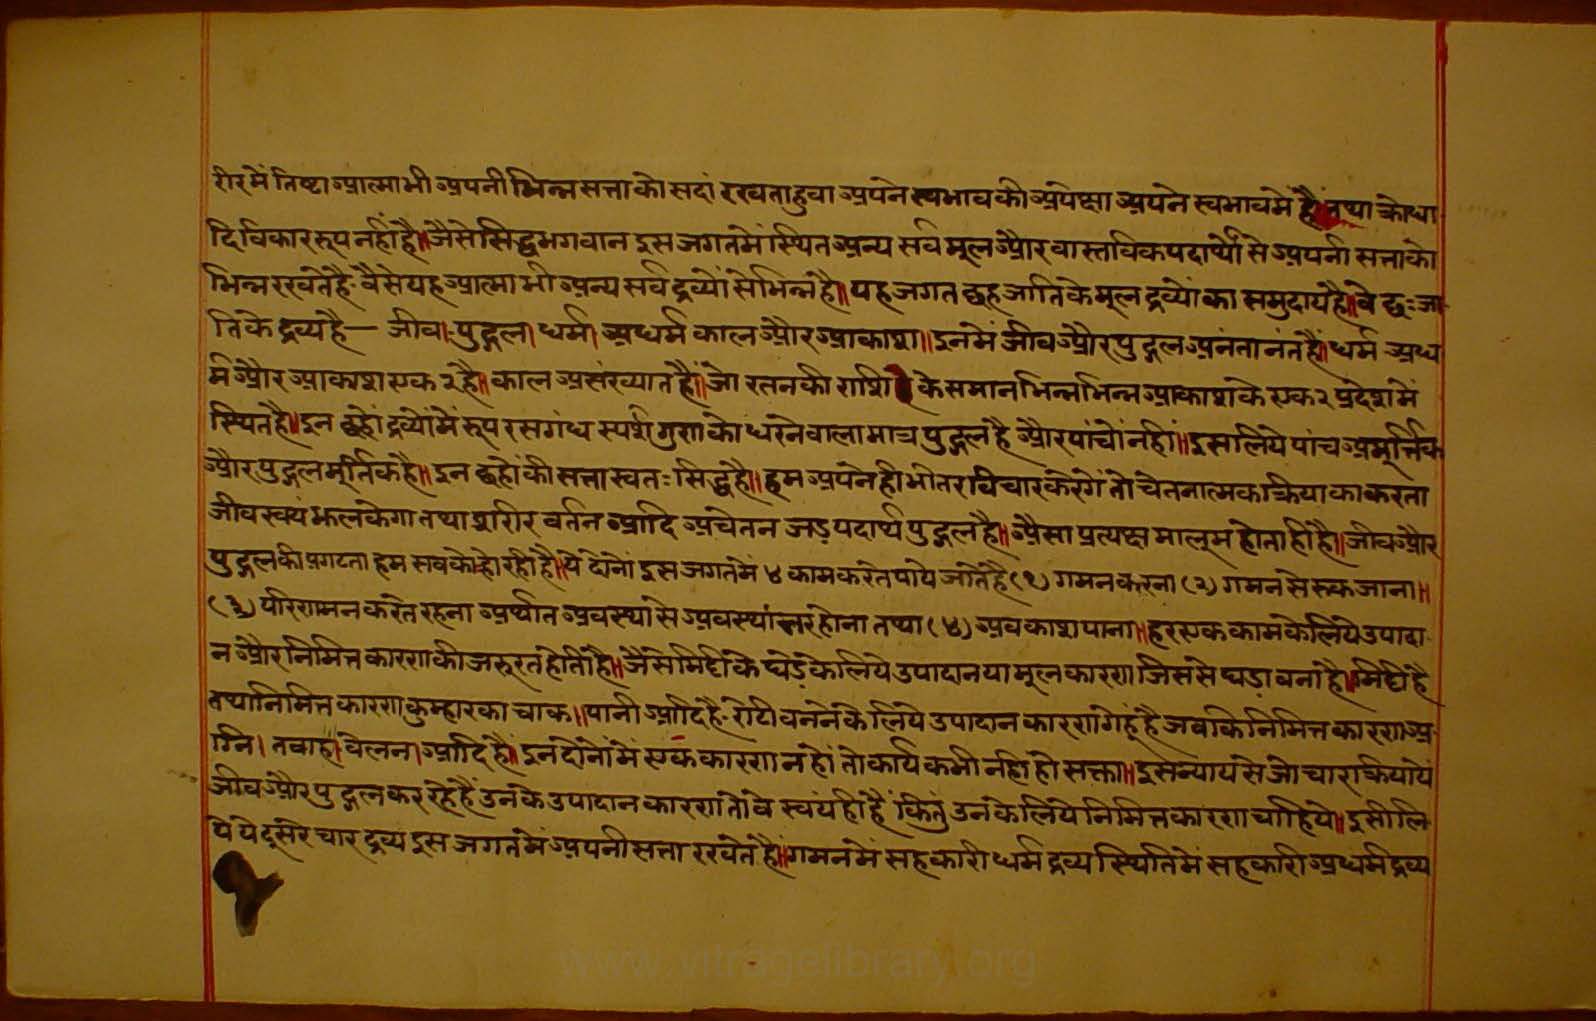 रीरमें तिष्टा आत्मा भी अपनी भिन्न सत्ता को सदां रखता हुवा अपने स्वभाव की अपेक्षा अपने स्वभावमें है॥ तथा क्रोधा
दि विकार रूप नहीं है॥ जैसे सिद्ध भगवान इस जगतमें स्थित अन्य सर्व मूल और वास्तविक पदार्थों से अपनी सत्ता को
भिन्न रखते है· वैसे यह आत्मा भी अन्य सर्व द्रव्यों से भिन्न है॥ यह जगत छह जाति के मूल द्रव्यों का समुदाय है॥ वे छः जा
ति के द्रव्य है— जीव। पुद्गल। धर्म। अधर्म काल और आकाश॥ इनमें जीव और पुद्गल अनंतानंत हैं॥ धर्म अध
र्म और आकाश एक २ है॥ काल असंख्यात है॥ जो रतन की राशि के समान भिन्न भिन्न आकाश के एक २ प्रदेश में
स्थित है॥ इन छहों द्रव्यों में रूप रस गंध स्पर्श गुण को धरने वाला मात्र पुद्गल है और पांचों नहीं॥ इसलिये पांच अमूर्त्तिक
और पुद्गल मूर्तिक है॥ इन छहों की सत्ता स्वतः सिद्ध है॥ हम अपने ही भीतर विचार करेगें तो चेतनात्मक क्रिया का करता
जीव स्वयं झलकेगा तथा शरीर वर्तन आदि अचेतन जड़ पदार्थ पुद्गल है॥ अैसा प्रत्यक्ष मालूम होता ही है॥ जीव और
पुद्गल की प्रगटता हम सबको हो रही है॥ ये दोनों इस जगतमें ४ काम करते पाये जाते है (१) गमन करना (२) गमन से रुक जाना॥
(३) परिणमन करते रहना अर्थात अवस्था से अवस्थांतर होना तथा (४) अवकाश पाना॥ हर एक काम के लिये उपादा
न और निमित्त कारण की जरूरत होती है॥ जैसे मिट्टी के घड़े के लिये उपादान या मूल कारण जिससे घड़ा बना है॥ मिट्टी है
तथा निमित्त कारण कुम्हार का चाक॥ पानी आदि है· रोटी बनने के लिये उपादान कारण गेहूं है जब कि निमित्त कारण अ
ग्नि। तवा। वेलन। आदि है॥ इन दोनों में एक कारण न हों तो कार्य कभी नहीं हो सक्ता॥ इस न्याय से जो चारों क्रियायें
जीव और पुद्गल कर रहे हैं उनके उपादान कारण तो वे स्वयं ही हैं किंतु उनके लिये निमित्त कारण चाहिये॥ इसीलि
ये ये दूसरे चार द्रव्य इस जगतमें अपनी सत्ता रखते हैं॥ गमन में सहकारी धर्म द्रव्य स्थिति में सहकारी अधर्म द्रव्य
www.vitragelibrary.org